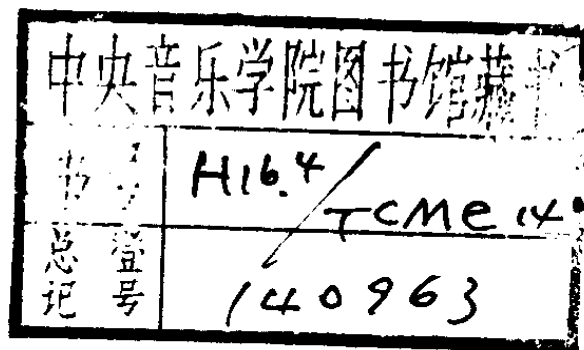 中央音乐学院图书馆藏书
书号 H16.4/TCMe 14
总登记号 140963